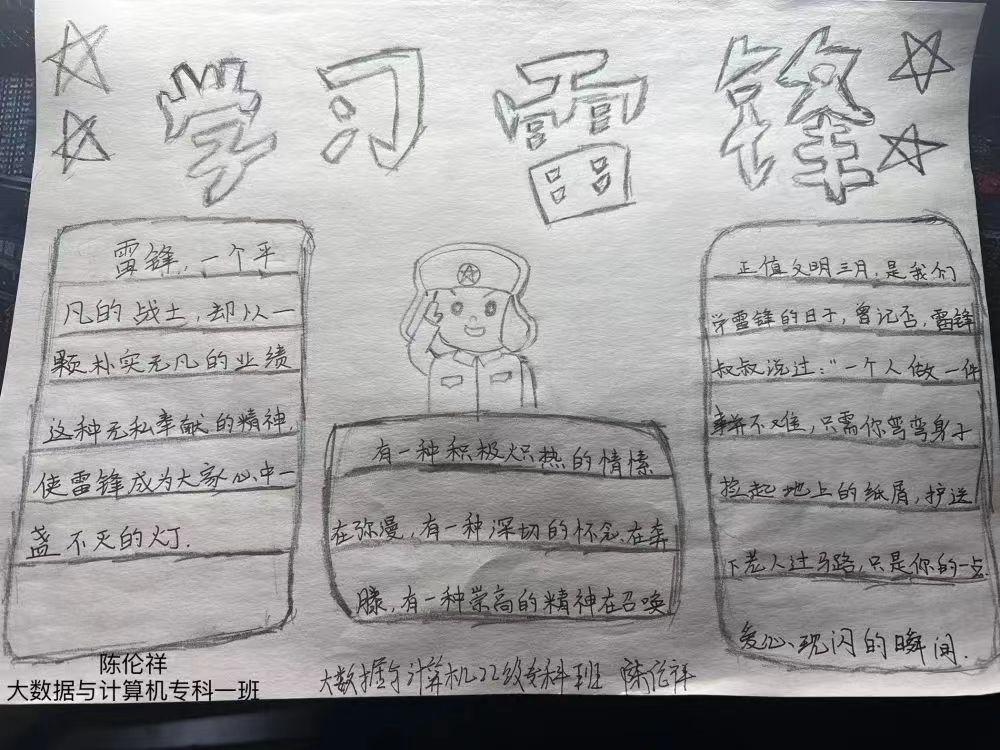 学习雷锋
雷锋,一个平
凡的战士,却以一
颗朴实无凡的业绩
这种无私奉献的精神,
使雷锋成为大家心中一
盏不灭的灯.
有一种积极炽热的情愫
在弥漫,有一种深切的怀念在奔
腾,有一种崇高的精神在召唤
正值文明三月,是我们
学雷锋的日子,曾记否,雷锋
叔叔说过:"一个人做一件
事并不难,只需你弯弯身子
捡起地上的纸屑,护送
下老人过马路,只是你的一点
爱心、现闪的瞬间.
大数据与计算机22级专科班 陈伦祥
陈伦祥
大数据与计算机专科一班